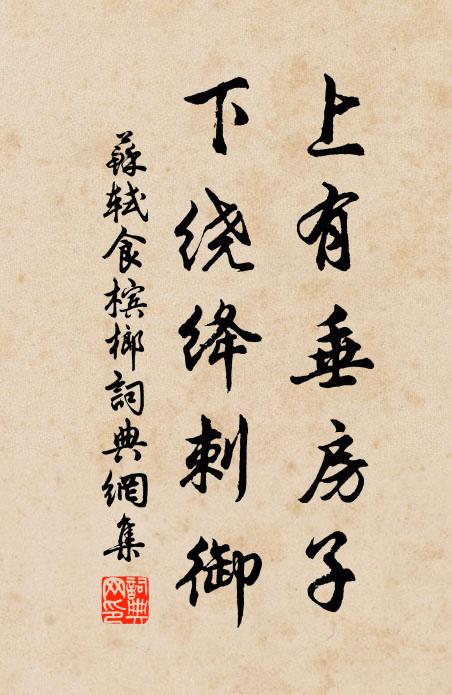 上有垂房子
下绕绛刺御
蘇軾食檳榔詞典網集
詞典网印